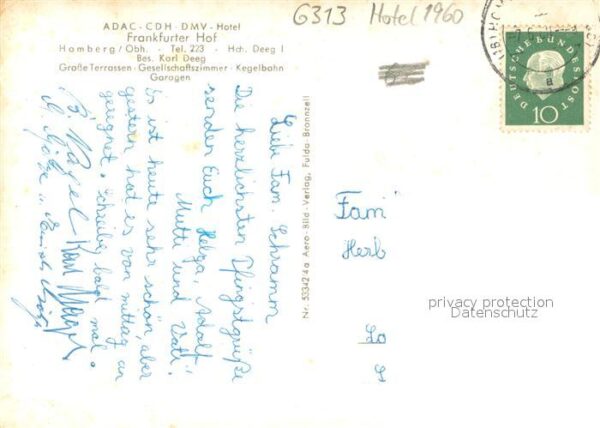 ADAC - CDH - DMV - Hotel
Frankfurter Hof
Homberg / Obh. - Tel. 223 - Hch. Deeg I
Bes. Karl Deeg
Große Terrassen - Gesellschaftszimmer - Kegelbahn
Garagen
G313 Hotel 1960
DEUTSCHE BUNDESPOST
10
a
Liebe Fam. Schramm
Die herzlichsten Pfingstgrüße
senden Euch Helga, Adolf,
Mutti und Vati.
Es ist heute sehr schön, aber
gestern hat es von mittag an
geregnet. Schreibe bald mal.
B. Nagel Karl
Nr. 53342 4a Aero-Bild-Verlag, Fulda-Bronnzell
Fam
Herb
privacy protection
Datenschutz